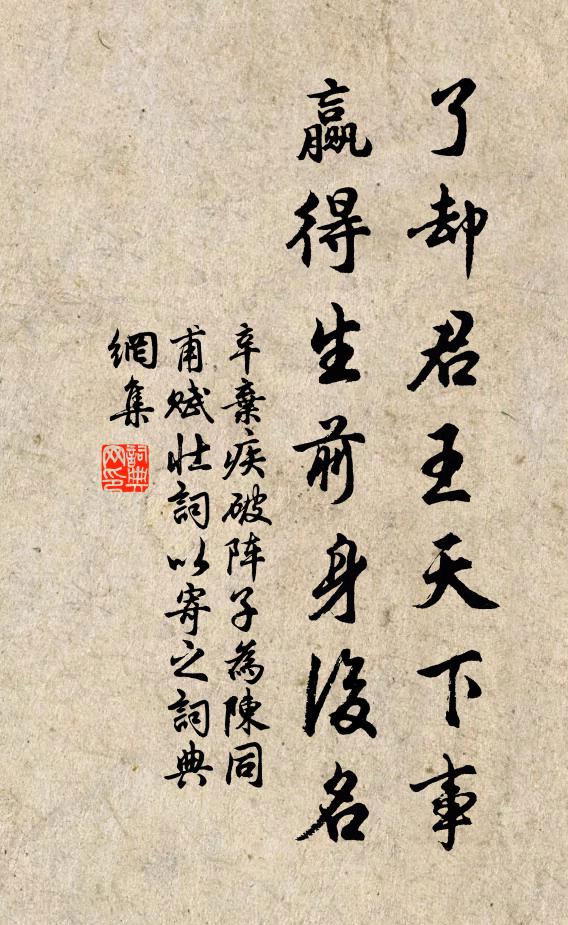 了却君王天下事
赢得生前身後名
辛棄疾破阵子為陳同
甫赋壮詞以寄之詞典
網集
詞典
网印